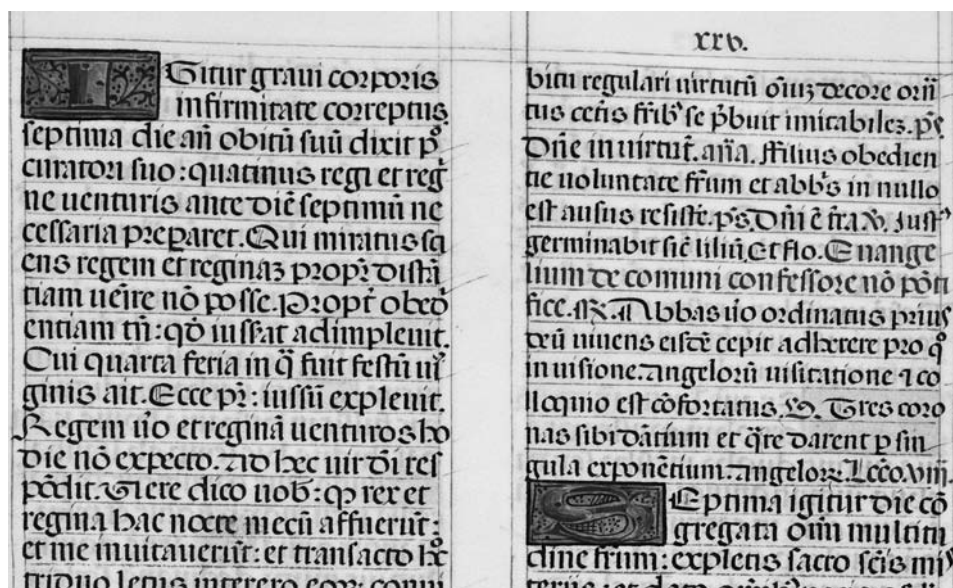 xxv.
IGitur graui corporis
infirmitate correptus
septima die añ obitũ suũ dixit p̃
curatori suo: quatinus regi et reg̃
ne uenturis ante diẽ septimũ ne
cessaria prepararet. Qui miratus sci
ens regem et reginaʒ propr̃ distã
tiam uẽire nõ posse. Propt̃ obedi
entiam tñ: qð iusserat adimpleuit.
Cui quarta feria in q̃ fuit festũ uir
ginis ait. Ecce pr̃: iussũ expleuit.
Regem ũo et reginã uenturos ho
die nõ expecto. Ad hec uir dĩ res
põdit. Uere dico uob̃: qꝫ rex et
regina hac nocte mecũ affuerũt:
et me inuitauerũt: et transacto hoc
triduo letus
bitu regulari uirtutũ õiuʒ decore orñ
tus cet̃is fr̃ib' se p̃buit imitabileʒ. p̃s
Dñe in uirtut̃. añа. Ffilius obedien
tie uoluntate fr̃um et abb̃s in nullo
est ausus resist̃e. p̃s. Dñi ẽ t̃ra. V. Just'
germinabit sic̃ liliũ. Et flo. Euange
lium de comuni confessore nõ põti
fice. R. Abbas ũo ordinatus prius
deũ uiuens eisdẽ cepit adherere pro q̃
in uisione. angelorũ uisitatione ⁊ co
lloquio est cõfortatus. V. Tres coro
nas sibi dãtium et q̃re darent p sin
gula exponẽtium. angeloꝝ. Lcc̃o. viij.
SEptima igitur die cõ
gregata oĩm multitu
dine fr̃um: expletis sacro scĩs mi